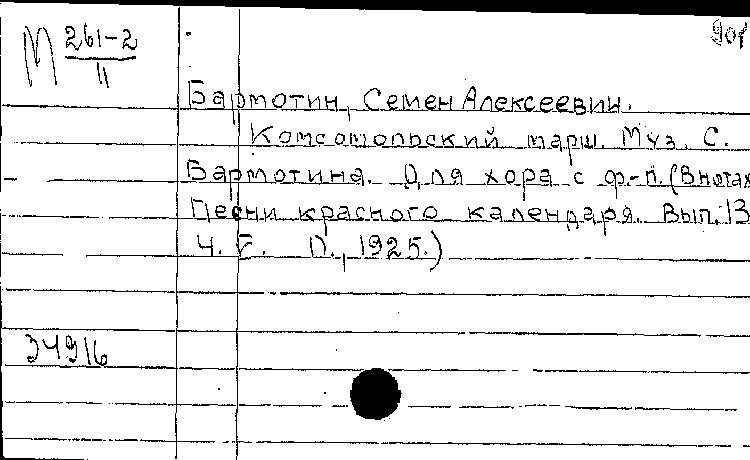 М 261-2
11
901
Бармотин, Семен Алексеевич.
Комсомольский марш. Муз. С.
Бармотина. Для хора с ф.-п. (В нотах
Песни красного календаря. Вып. 13
Ч. Л., 1925.)
34916